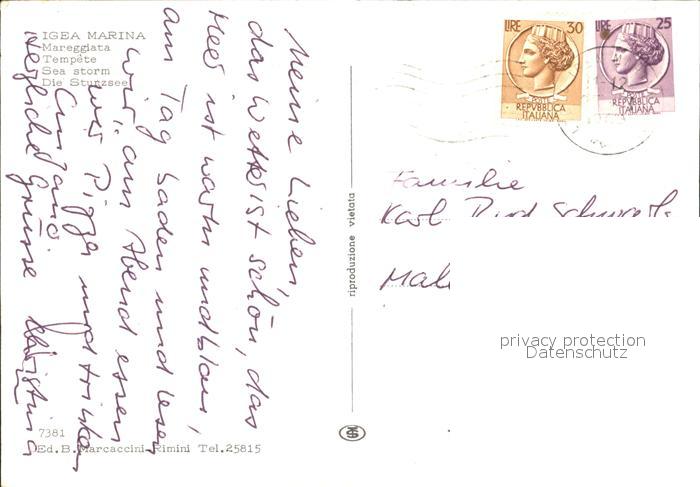 IGEA MARINA
Mareggiata
Tempête
Sea storm
Die Sturzsee
Meine Lieben,
das Wetter ist schön, das
Meer ist warm und blau,
am Tag baden und lesen
wir, am Abend essen
wir Pizza und trinken
Cinzano
Herzliche Grüsse Christina
7381
Ed. B. Marcaccini-Rimini Tel.25815
riproduzione vietata
LIRE 30
POSTE
REPVBBLICA
ITALIANA
LIRE 25
POSTE
REPVBBLICA
ITALIANA
Familie
Karl
privacy protection
Datenschutz